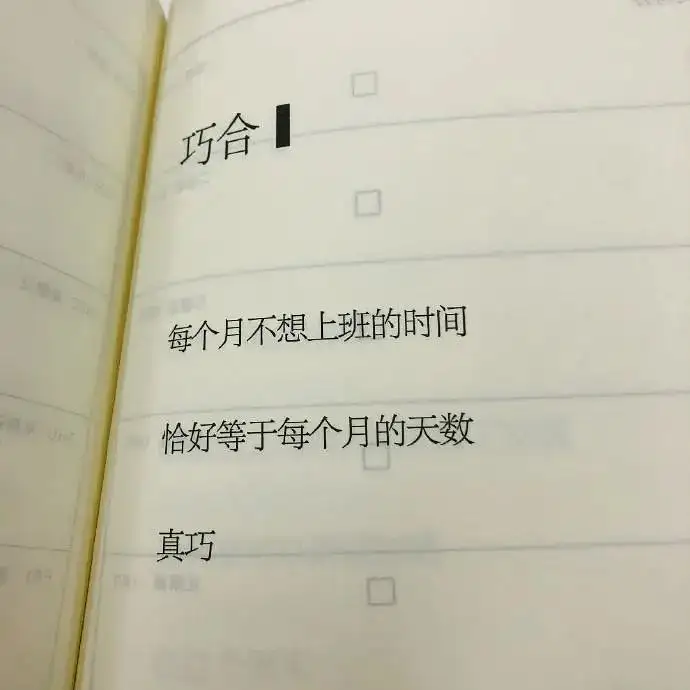 巧合
每个月不想上班的时间
恰好等于每个月的天数
真巧